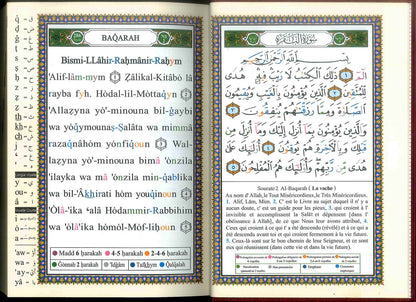 BAQARAH
Bismi-LLâhir-Raḥmânir-Raḥym
'Alif-lâm-mym 1
Ẕâlikal-Kitâbó lâ
rayba fyh, Hódal-lil-Móttaqyn 2
'Allaẕyna yo'-minouna bil-ġaybi
wa yóqymounaṣ-Ṣalâta wa mimmâ
razaqnâhóm yonfiqoun 3 Wa-
llaẕyna yo'-minouna bimâ 'onzila
'ilayka wa mâ 'onzila min-qablika
wa bil-'Âkhirati hóm youqinoun 4
'Ôlâ-'ika ʿalâ Hódammir-Rabbihim
wa 'olâ'ika hómól-Móf-liḥoun 5
Madd 6 ḥarakah 4-5 ḥarakah 2-4-6 ḥarakah
Ġonnah 2 ḥarakah 'Idġâm Tafkhym Qalqalah
سورة البقرة
بسم الله الرحمن الرحيم
الٓمٓ ١ ذَٰلِكَ الْكِتَابُ لَا رَيْبَ ۛ فِيهِ ۛ هُدًى
لِّلْمُتَّقِينَ ٢ الَّذِينَ يُؤْمِنُونَ بِالْغَيْبِ وَيُقِيمُونَ
الصَّلَاةَ وَمِمَّا رَزَقْنَاهُمْ يُنفِقُونَ ٣ وَالَّذِينَ
يُؤْمِنُونَ بِمَا أُنزِلَ إِلَيْكَ وَمَا أُنزِلَ مِن
قَبْلِكَ وَبِالْآخِرَةِ هُمْ يُوقِنُونَ ٤ أُولَٰئِكَ
عَلَىٰ هُدًى مِّن رَّبِّهِمْ وَأُولَٰئِكَ هُمُ الْمُفْلِحُونَ ٥
Sourate 2 Al-Baqarah ( La vache )
Au nom d'Allah, le Tout Miséricordieux, le Très Miséricordieux.
1. Alif, Lâm, Mîm. 2. C'est le Livre au sujet duquel il n'y a
aucun doute, c'est un guide pour les pieux, 3. qui croient à l'
invisible et accomplissent la Salât et dépensent (dans l'
obéissance à Allah), de ce que Nous leur avons attribué, 4.
Ceux qui croient à ce qui t'a été descendu (révélé) et à ce qui
a été descendu avant toi et qui croient fermement à la vie future.
5. Ceux-là sont sur le bon chemin de leur Seigneur, et ce sont
eux qui réussissent (dans cette vie et dans la vie future).